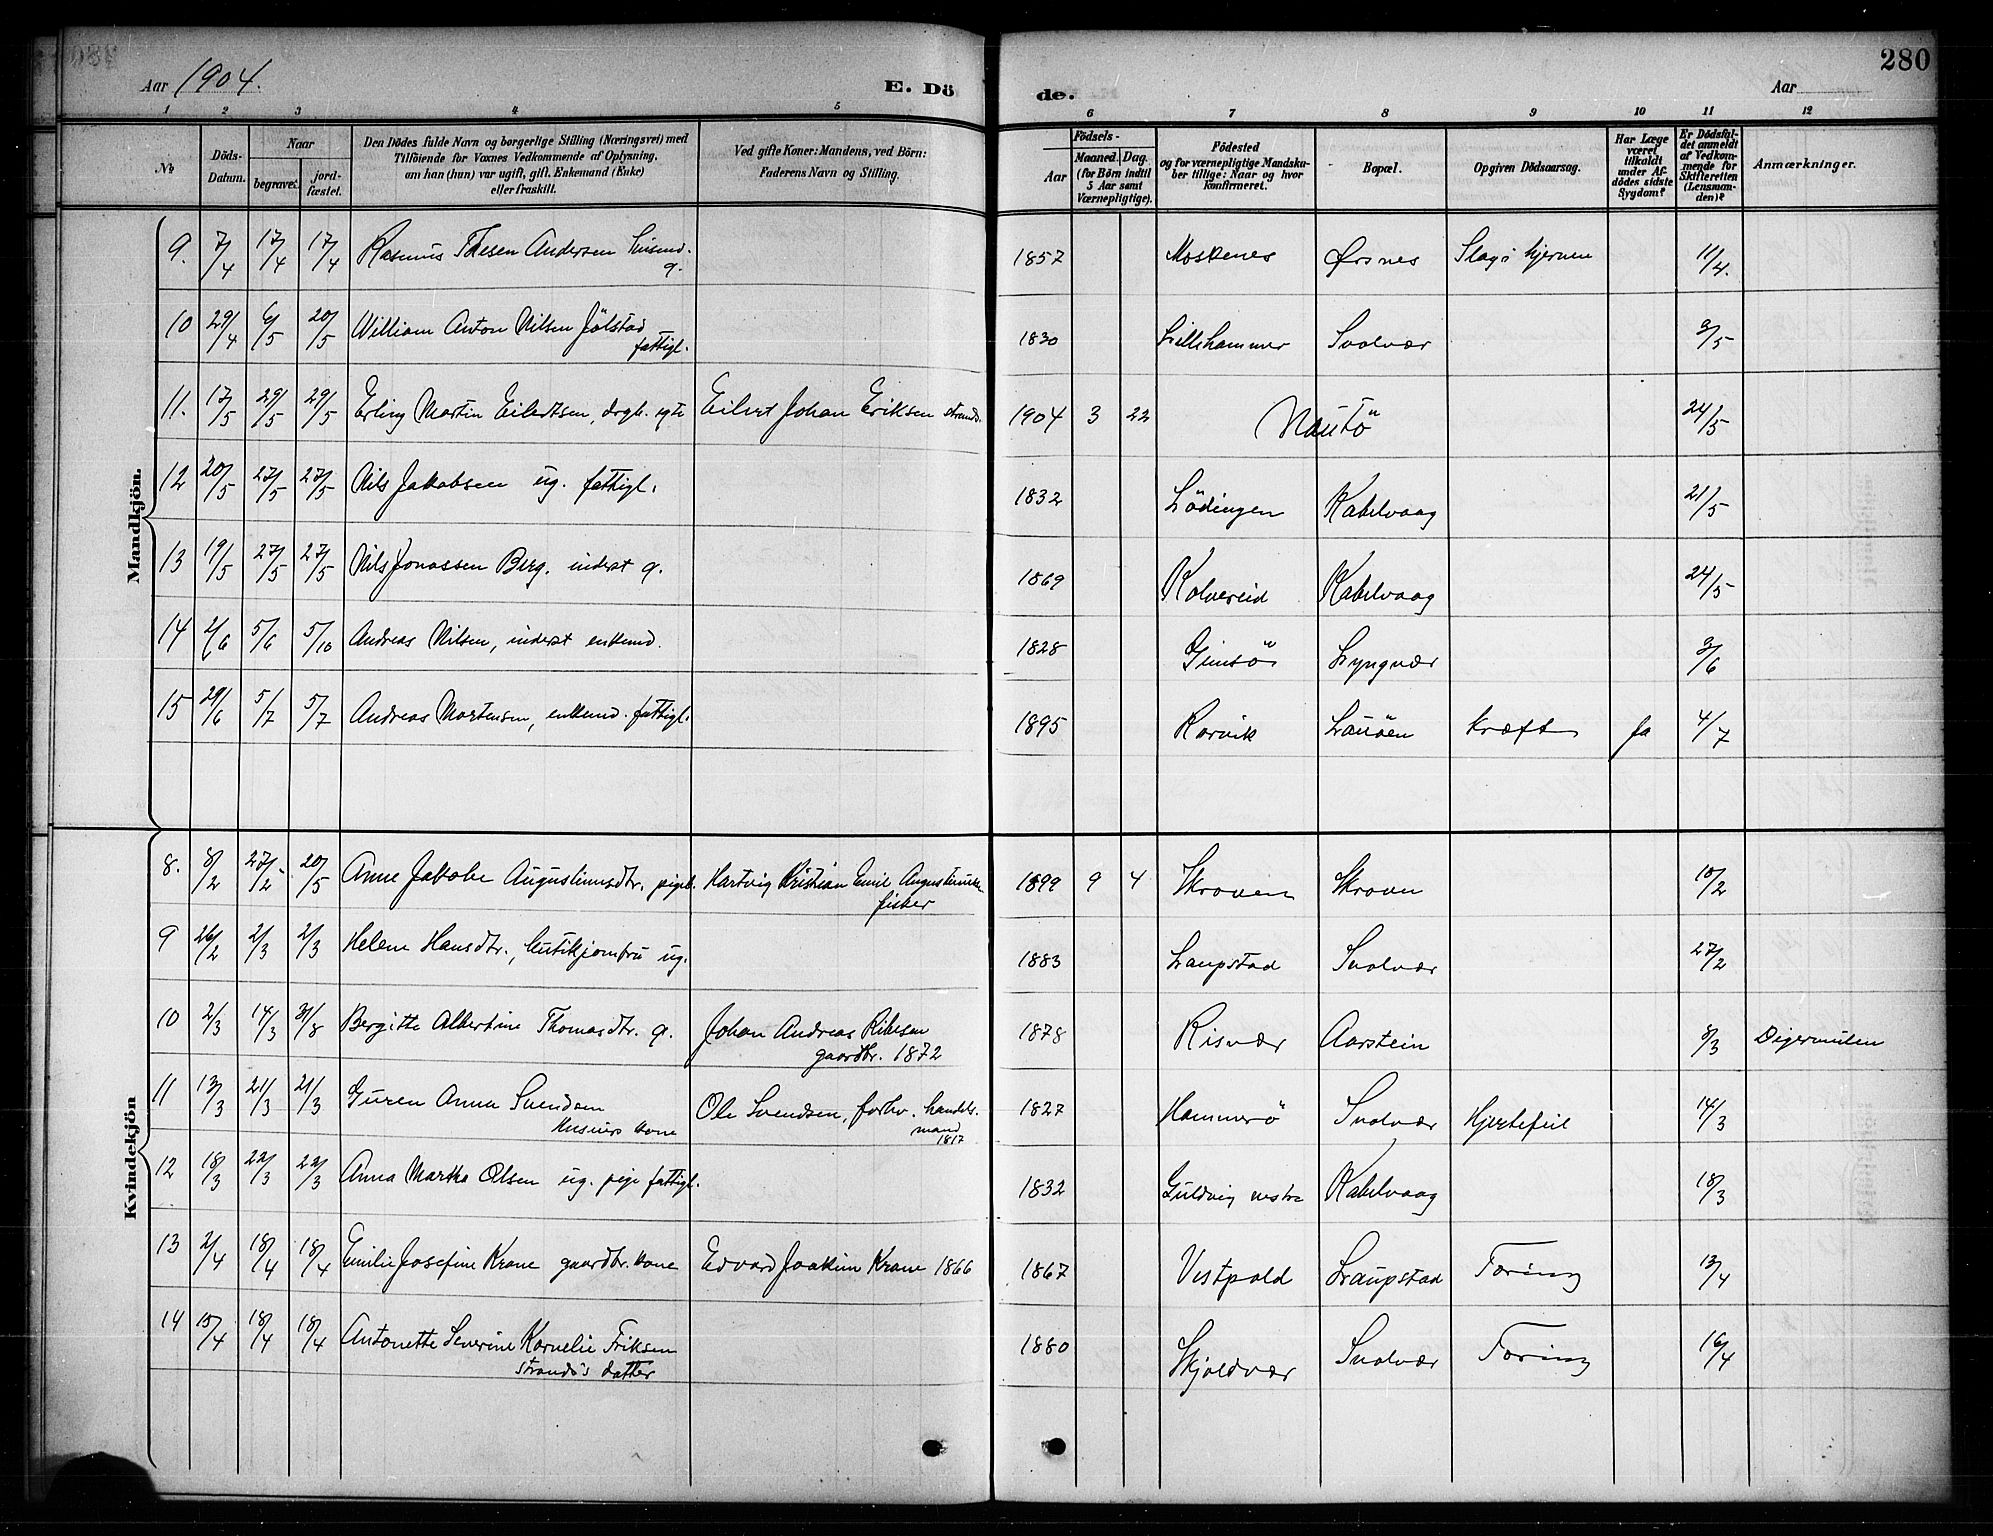 280
Aar 1904.
E. Döde.
Aar
1 2 3 4 5 6 7 8 9 10 11 12
No
Döds-Datum.
Naar
begravet.
jord-fæstet.
Den Dödes fulde Navn og borgerlige Stilling (Næringsvei) med
Tilföiende for Voxnes Vedkommende af Oplysning,
om han (hun) var ugift, gift, Enkemand (Enke)
eller fraskilt.
Ved gifte Koner: Mandens, ved Börn:
Faderens Navn og Stilling.
Födsels-
Aar
Maaned. Dag.
(for Börn indtil
5 Aar samt
Værnepligtige).
Födested
og for værnepligtige Mandsku-
ber tillige: Naar og hvor
konfirmeret.
Bopæl.
Opgiven Dödsaarsag.
Har Læge
været
tilkaldt
under Af-
dödes sidste
Sygdom?
Er Dödsfal-
det anmeldt
af Vedkom-
mende for
Skifteretten
(Lensman-
den)?
Anmærkninger.
Mandkjön.
9. 7/4 17/4 17/4 Rasmus Thesen Andersen g. 1857 Moskenes Ørsnes Slag i hjernen 11/4.
10 29/4 6/5 20/5 William Anton Nilsen Jölstad fattigl. 1830 Lillehammer Svolvær 3/5
11. 17/5 29/5 29/5 Erling Martin Eilertsen, drgb. egte Eilert Johan Eriksen strands. 1904 3 22 Nautö 24/5
12 20/5 27/5 27/5 Nils Jakobsen ug. fattigl. 1832 Lödingen Kabelvaag 21/5
13 19/5 27/5 27/5 Nils Jonassen Berg. inderst g. 1869 Kolvereid Kabelvaag 24/5
14 2/6 5/6 5/10 Andreas Nilsen, inderst enkemd. 1828 Gimsö Lyngvær 3/6
15 29/6 5/7 5/7 Andreas Mortensen, enkemd. fattigl. 1895 Rørvik Lauöen kræft ja 4/7
Kvindekjön
8. 8/2 27/2 20/5 Anne Jakobe Augustinusdtr. pigeb. Hartvig Kristian Emil Augustinussen fisker 1899 9 4 Skroven Skroven 10/2
9 26/2 2/3 2/3 Helene Hansdtr., butikjomfru ug. 1883 Laupstad Svolvær 27/2
10 2/3 14/3 31/8 Bergitte Albertine Thomasdtr. g. Johan Andreas Rikesen gaardbr. 1872 1878 Risvær Aarstein 8/3 Digermulen
11 13/3 21/3 21/3 Guren Anna Svendsen kone Ole Svendsen, forhv. handelsmand 1817 1827 Hammerö Svolvær Hjertefeil 14/3
12 18/3 22/3 22/3 Anna Martha Olsen ug. pige fattigl. 1832 Guldvig vestre Kabelvaag 18/3
13 2/4 18/4 18/4 Emilie Josefine Krane gaardbr. kone Edvard Joakim Krane 1866 1867 Vestpold Laupstad Tæring 13/4
14 15/4 18/4 18/4 Antonette Severine Kornelie Friksen strands's datter 1880 Skjoldvær Svolvær Tæring 16/4